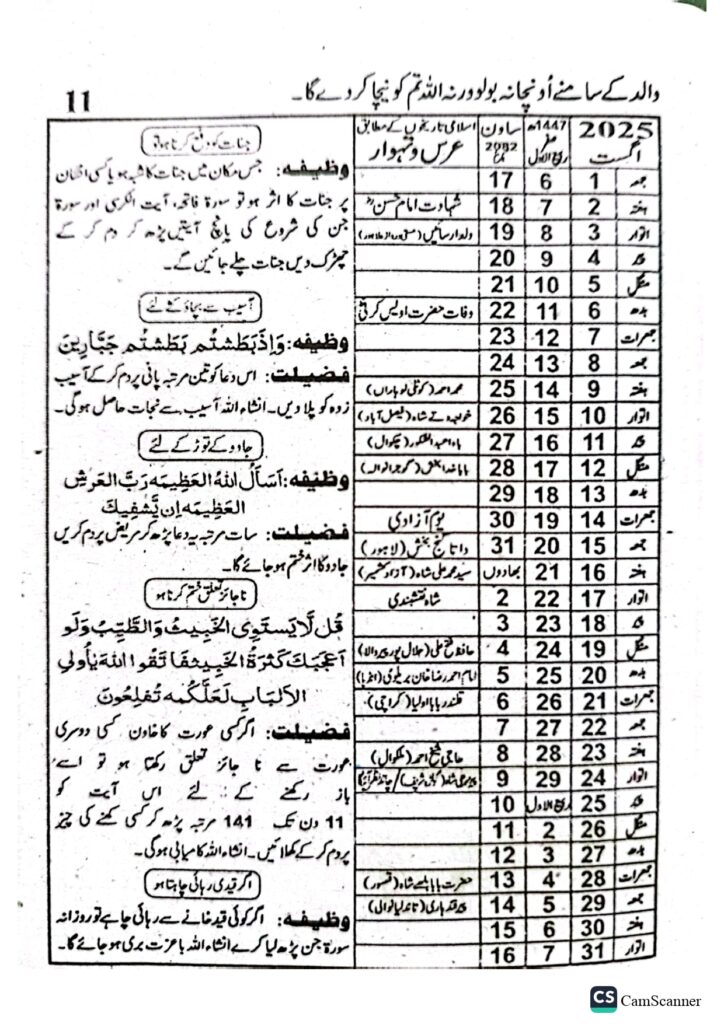 والد کے سامنے اُونچا نہ بولو ورنہ اللہ تم کو نیچا کر دے گا۔
11
2025 اگست
1447ھ صفر ربیع الاول
ساون 2082
اسلامی تاریخوں کے مطابق عرس و تہوار
جمعہ 1 6 17
ہفتہ 2 7 18 شہادت امام حسنؓ
اتوار 3 8 19 ولدار سائیں
پیر 4 9 20
منگل 5 10 21
بدھ 6 11 22 وفات حضرت اویس کرنی
جمعرات 7 12 23
جمعہ 8 13 24
ہفتہ 9 14 25 محمد احمد (کوٹلی لوہاراں)
اتوار 10 15 26 شاہ (فیصل آباد)
پیر 11 16 27 (چکوال)
منگل 12 17 28 بابا خدا بخش (گوجرانوالہ)
بدھ 13 18 29
جمعرات 14 19 30 یوم آزادی
جمعہ 15 20 31 داتا گنج بخش (لاہور)
ہفتہ 16 21 بھادوں سید محمد علی شاہ (آزاد کشمیر)
اتوار 17 22 2 شاہ نقشبندی
پیر 18 23 3
منگل 19 24 4 حافظ فتح علی (جلال پور پیر والا)
بدھ 20 25 5 امام احمد رضا خان بریلوی (انڈیا)
جمعرات 21 26 6 قلندر بابا اولیا (کراچی)
جمعہ 22 27 7
ہفتہ 23 28 8 حاجی شیخ احمد (ملکوال)
اتوار 24 29 9 / چاند نظر آئیگا
پیر 25 ربیع الاول 10
منگل 26 2 11
بدھ 27 3 12
جمعرات 28 4 13 حضرت بابا بلھے شاہ (قصور)
جمعہ 29 5 14 پیر قندہاری (تاندلیانوالی)
ہفتہ 30 6 15
اتوار 31 7 16
جنات کو دفع کرنا ہو تو
وظیفہ: جس مکان میں جنات کا شبہ ہو یا کسی انسان
پر جنات کا اثر ہو تو سورۃ فاتحہ، آیت الکرسی اور سورۃ
جن کی شروع کی پانچ آیتیں پڑھ کر دم کر کے
چھڑک دیں جنات چلے جائیں گے۔
آسیب سے بچاؤ کے لئے
وظیفہ: وَاِذَ بَطَشتُم بَطَشتُم جَبَّارِینَ
فضیلت: اس دعا کو تین مرتبہ پانی پر دم کر کے آسیب
زدہ کو پلا دیں۔ انشاء اللہ آسیب سے نجات حاصل ہوگی۔
جادو کے توڑ کے لئے
وظیفہ: اَسَأَلُ اللهُ العَظِیمِہ رَبَّ العَرشِ
العَظِیمِہ اِن یَّشفِیكَ
فضیلت: سات مرتبہ یہ دعا پڑھ کر مریض پر دم کریں
جادو کا اثر ختم ہو جائے گا۔
نا جائز تعلق ختم کرنا ہو
قُل لَّا یَستَوِی الخَبِیثُ وَالطَّیِّبُ وَلَو
اَعجَبَكَ كَثرَةُ الخَبِیثِ فَا تَّقُوا اللهَ یٰأُولِی
الاَلبَابِ لَعَلَّكُمہ تُفلِحُونَ
فضیلت: اگر کسی عورت کا خاون کسی دوسری
عورت سے نا جائز تعلق رکھتا ہو تو اسے
باز رکھنے کے لئے اس آیت کو
11 دن تک 141 مرتبہ پڑھ کر کسی کھنے کی چیز
پر دم کر کے کھلائیں۔ انشاء اللہ کامیابی ہوگی۔
اگر قیدی رہائی چاہتا ہو
وظیفہ: اگر کوئی قید خانے سے رہائی چاہے تو روزانہ
سورۃ جن پڑھ لیا کرے انشاء اللہ باعزت بری ہو جائے گا۔
CS CamScanner